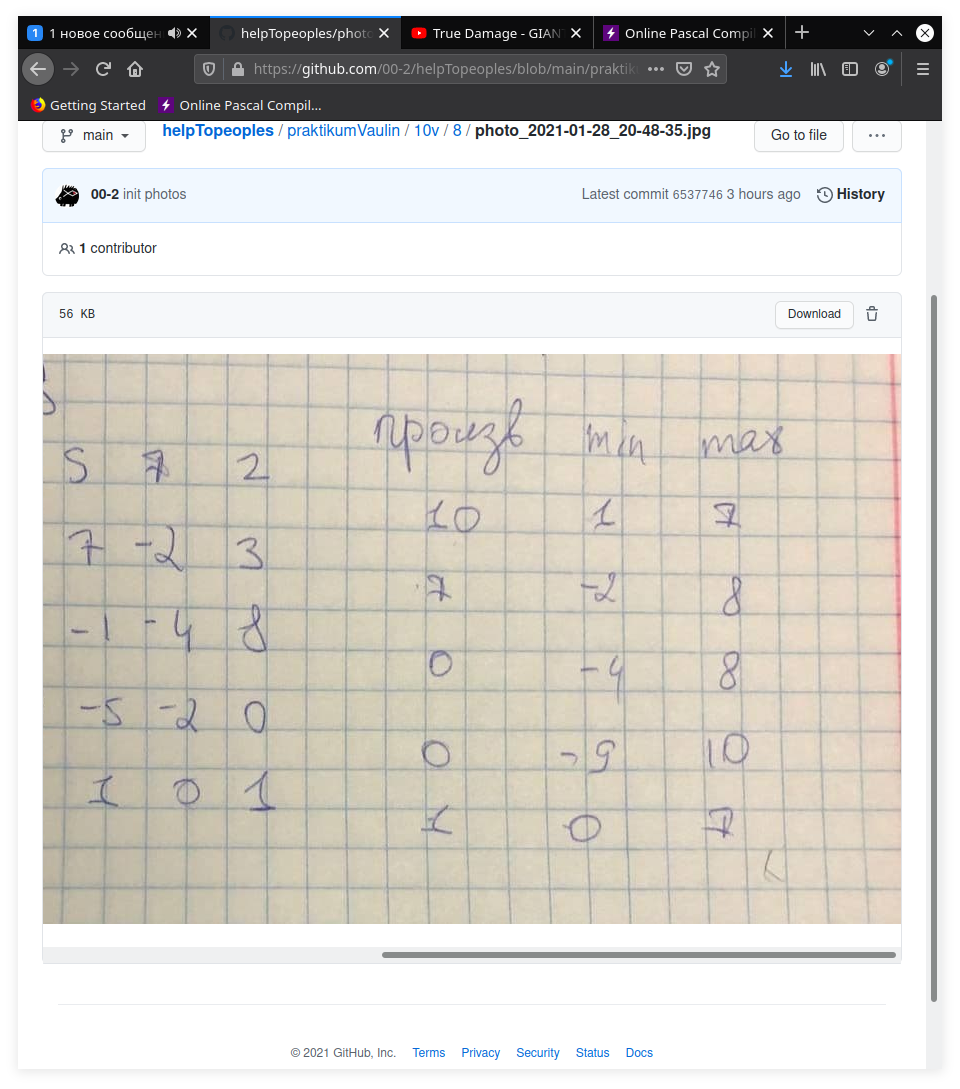 1 1 новое сообщен
helpTopeoples/photo
True Damage - GIAN
Online Pascal Compil
https://github.com/00-2/helpTopeoples/blob/main/praktik
Getting Started
Online Pascal Compil...
main
helpTopeoples / praktikumVaulin / 10v / 8 / photo_2021-01-28_20-48-35.jpg
Go to file
...
00-2 init photos
Latest commit 6537746 3 hours ago
History
1 contributor
56 KB
Download
произв min max
5 7 2
10 1 7
7 -2 3
7 -2 8
-1 -4 8
0 -4 8
-5 -2 0
0 -9 10
1 0 1
1 0 7
© 2021 GitHub, Inc. Terms Privacy Security Status Docs